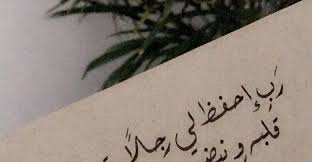 رَبِ إحفظ لي رجلاً
قلبه و نبض